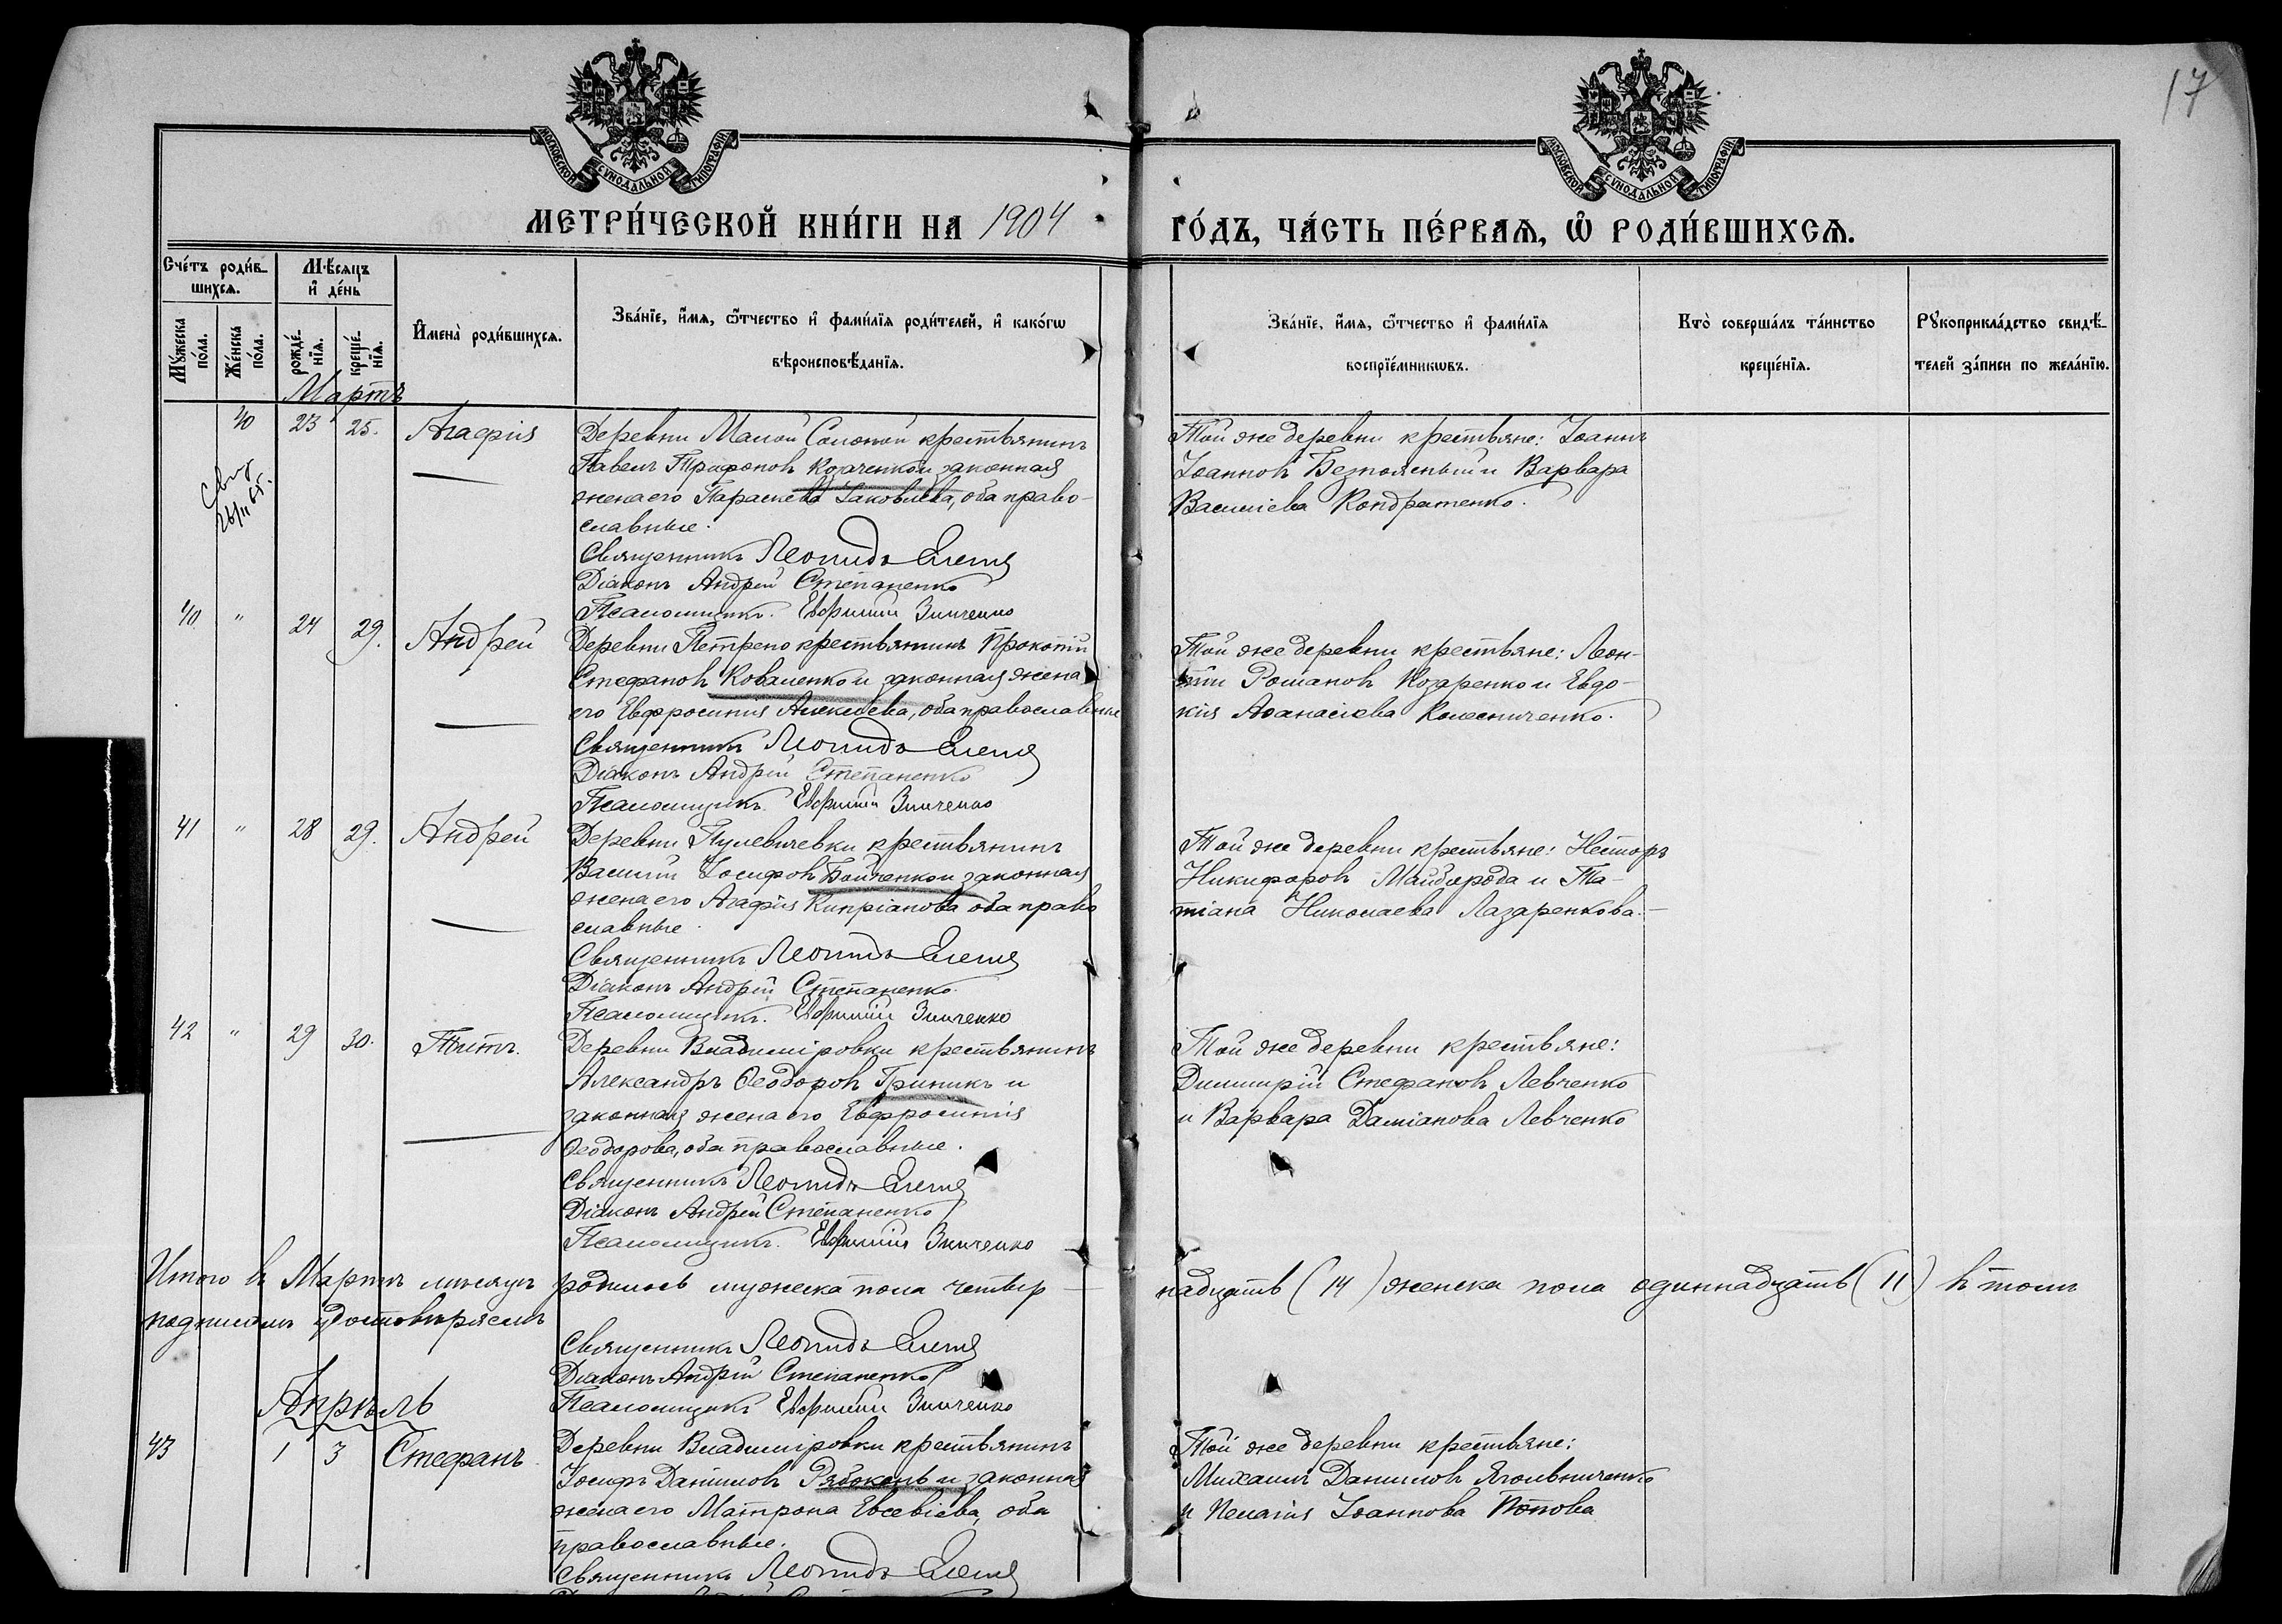 17
МОСКОВСКОЙ СѴНОДАЛЬНОЙ ТИПОГРАФІИ
МОСКОВСКОЙ СѴНОДАЛЬНОЙ ТИПОГРАФІИ
МЕТРИ́ЧЕСКОЙ КНИ́ГИ НА 1904
ГО́ДЪ, ЧА́СТЬ ПЕ́РВАѦ, Ѡ҆ РОДИ́ВШИХСѦ.
Сче́тъ роди́вшихсѧ.
Мѣ́сѧцъ и҆ де́нь
Мꙋ́жеска по́ла.
Же́нска по́ла.
рожде́нїѧ.
креще́нїѧ.
И҆мена̀ роди́вшихсѧ.
Зва́нїе, и҆́мѧ, ѻ҆́тчество и҆ фами́лїѧ роди́телей, и҆ како́гѡ
вѣроисповѣ́данїѧ.
Зва́нїе, и҆́мѧ, ѻ҆́тчество и҆ фами́лїѧ
воспрїе́мникѡвъ.
Кто̀ соверша́лъ та́инство
креще́нїѧ.
Рꙋкоприкла́дство свидѣ́-
телей за́писи по жела́нїю.
Мартъ
40 23 25. Агафія
Деревни Малой Солоной крестьянинъ
Павелъ Трифоновъ Козаченко и законная
жена его Параскева Іаковлева, оба право-
славные.
Священникъ Леонидъ
Діаконъ Андрей Степаненко
Псаломщикъ Евфимій Зинченко
Той же деревни крестьяне: Іоаннъ
Іоанновъ Безполеный и Варвара
Василіева Кондратенко.
40 " 24 29. Андрей
Деревни Петрено крестьянинъ Прокопій
Стефановъ Коваленко и законная жена
его Евфросинія Алексѣева, оба православные
Священникъ Леонидъ
Діаконъ Андрей Степаненко
Псаломщикъ Евфимій Зинченко
Той же деревни крестьяне: Леон-
тій Романовъ Козаренко и Евдо-
кія Аѳанасіева Колесниченко.
41 " 28 29. Андрей
Деревни Пулевичевки крестьянинъ
Василій Іосифовъ Бойченко и законная
жена его Агафія Кипріанова оба право
славные.
Священникъ Леонидъ
Діаконъ Андрей Степаненко
Псаломщикъ Евфимій Зинченко
Той же деревни крестьяне: Несторъ
Никифоровъ Майборода и Та-
тіана Николаева Лазаренкова.
42 " 29 30. Титъ.
Деревни Владиміровки крестьянинъ
Александръ Ѳеодоровъ Гриникъ и
законная жена его Евфросинія
Ѳеодорова, оба православные.
Священникъ Леонидъ
Діаконъ Андрей Степаненко
Псаломщикъ Евфимій Зинченко
Той же деревни крестьяне:
Димитрій Стефановъ Левченко
и Варвара Даміанова Левченко
Итого въ Мартѣ мѣсяцѣ родилось мужеска пола четыр-
надцать (14) женска пола одиннадцать (11) въ томъ
подписомъ удостовѣряемъ
Священникъ Леонидъ
Діаконъ Андрей Степаненко
Псаломщикъ Евфимій Зинченко
Апрѣль
43 1 3 Стефанъ
Деревни Владиміровки крестьянинъ
Іосифъ Даніиловъ Рябоконь и законная
жена его Матрона Евсевіева, оба
православные.
Священникъ Леонидъ
Той же деревни крестьяне:
Михаилъ Даниловъ Ягольниченко
и Пелагія Іоаннова Попова